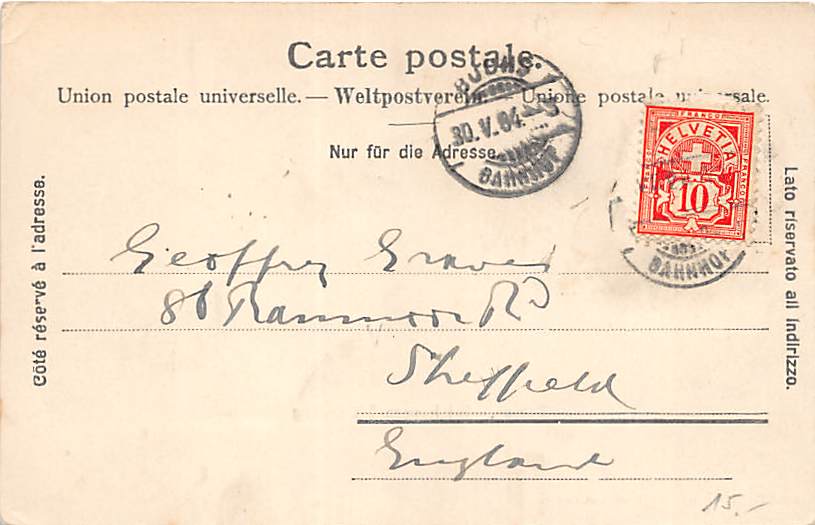 Carte postale.
Union postale universelle. — Weltpostverein. — Unione postale universale.
Nur für die Adresse.
BUCHS
30.V.04.
BAHNHOF
FRANCO
HELVETIA
FRANCO
FRANCO
10
BAHNHOF
Côté réservé à l'adresse.
Lato riservato all indirizzo.
Geoffrey Graves
Ranmoor Rd
Sheffield
England
15.-